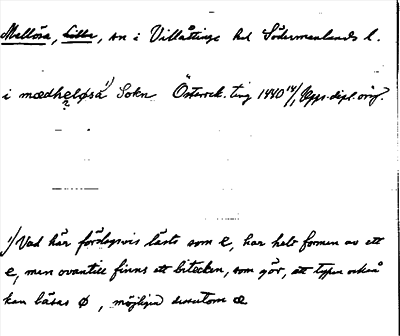 Mellösa, Lilla, sn i Villåttinge hd Södermanlands l.
i mædheløsa 1) Sokn Österrek. ting 1440 14/1 Upps. dipl. orig.
1) Vad här förslagsvis lästs som e, har helt formen av ett
e, men ovantill finns ett bitecken, som gör, att typen också
kan läsas ø, möjligen dessutom æ